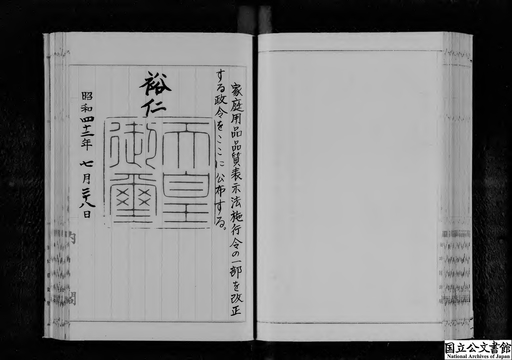 家庭用品品質表示法施行令の一部を改正
する政令をここに公布する。
裕仁
天皇
御璽
昭和四十三年七月二十八日
内
閣
国立公文書館
National Archives of Japan